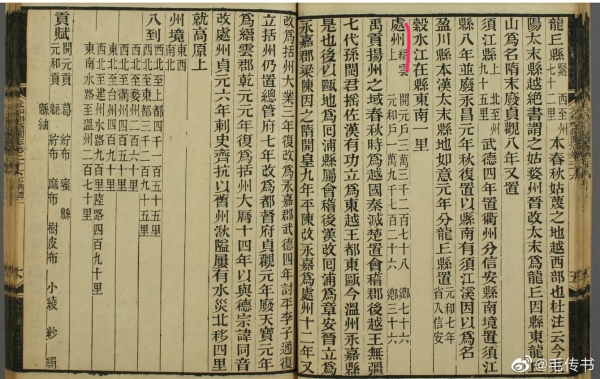 龍丘縣緊 西至州七十二里 本春秋姑蔑之地越西部也杜注云今東
陽太末縣越絶書謂之姑婺州晉改太末爲龍丘因縣東龍丘
山爲名隋末廢貞觀八年又置
須江縣上 北至州九十五里 武德四年置衢州分信安縣南境置須江
縣八年並廢永昌元年秋復置以縣南有須江溪因以爲名
盈川縣本漢太末縣地如意元年分龍丘縣置 元和七年省入信安
穀水江在縣東南一里
處州 縉雲上 開元戶三萬三千二百七十八 鄉七十六
元和戶一萬九千七百二十六 鄉三十
禹貢揚州之域春秋時爲越國秦滅楚置會稽郡後越王無彊
七代孫閩君搖佐漢有功立爲東越王都東甌今溫州永嘉縣
是也後以甌地爲回浦縣屬會稽後漢改回浦爲章安晉立爲
永嘉郡梁陳因之隋開皇九年平陳改永嘉爲處州十二年又
改爲括州大業三年復改爲永嘉郡武德四年討平李子通復
立括州仍置總管府七年改爲都督府貞觀元年廢天寶元年
爲縉雲郡乾元元年復爲括州大曆十四年以與德宗諱同音
改處州貞元六年刺史齊抗以舊州湫隘屢有水災北移四里
就高原上
州境 東西 南北
八到 西北至上都四千一百五十五里
西北至東都三千二百九十五里
西至衢州四百五十里
西北至婺州二百六十里
東北至台州四百九十里
西南至建州水路九百里陸路四百九十里
東南水路至溫州二百七十里
貢賦 開元貢 葛 紵布 蜜
元和貢 緜 紵布 麻布 樹皮布 小綾 紗 絹
緜紬
@毛传书